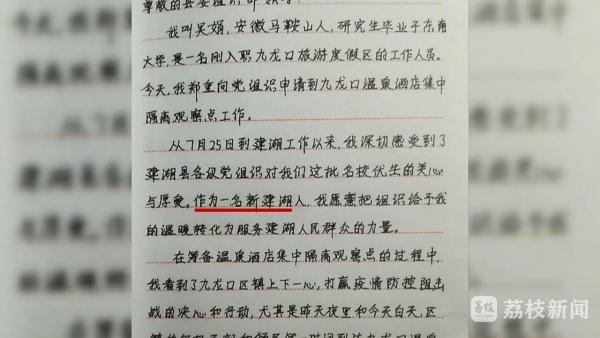 我叫吴娟,安徽马鞍山人,研究生毕业于东南
大学,是一名刚入职九龙口旅游度假区的工作人员。
今天,我郑重向党组织申请到九龙口温泉酒店集中
隔离观察点工作。
从7月25日到建湖工作以来,我深切感受到了
建湖县各级党组织对我们这批名校优生的关心
与厚爱。作为一名新建湖人,我愿意把组织给予我
的温暖转化为服务建湖人民群众的力量。
在筹备温泉酒店集中隔离观察点的过程中,
我看到了九龙口区镇上下一心,打赢疫情防控阻击
战的决心和行动,尤其是昨天夜里和今天白天,区
荔枝新闻